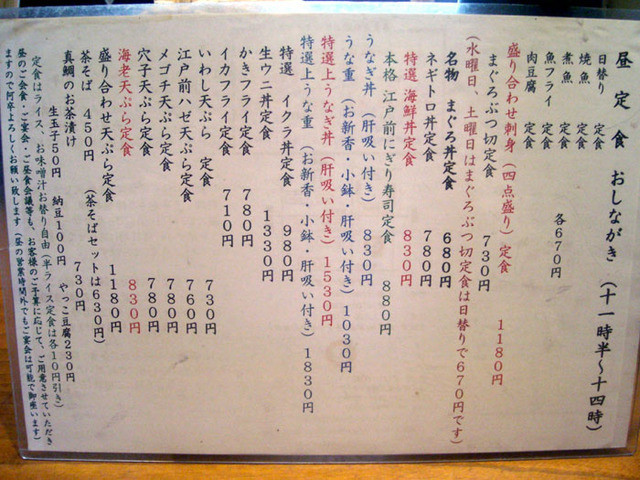 昼定食 おしながき (十一時半～十四時)
日替り 定食
焼魚 定食
煮魚 定食
魚フライ 定食
肉豆腐 定食
各670円
盛り合わせ刺身(四点盛り)定食 1180円
まぐろぶつ切定食 730円
(水曜日、土曜日はまぐろぶつ切定食は日替りで670円です)
名物 まぐろ丼定食 680円
ネギトロ丼定食 780円
特選 海鮮丼定食 830円
本格 江戸前にぎり寿司定食 880円
うなぎ丼(肝吸い付き) 830円
うな重(お新香・小鉢・肝吸い付き) 1030円
特選上うなぎ丼(肝吸い付き) 1530円
特選上うな重(お新香・小鉢・肝吸い付き) 1830円
特選 イクラ丼定食 980円
生ウニ丼定食 1330円
かきフライ定食 780円
イカフライ定食 710円
いわし天ぷら 定食 730円
江戸前ハゼ天ぷら定食 760円
メゴチ天ぷら定食 780円
穴子天ぷら定食 780円
海老天ぷら定食 830円
盛り合わせ天ぷら定食 1180円
茶そば 450円 (茶そばセットは630円)
真鯛のお茶漬け 730円
生玉子50円 納豆100円 やっこ豆腐230円
定食はライス、お味噌汁お替り自由(半ライス定食は各10円引き)
昼のご会食・ご宴会・ご昼食会議等も、お客様のご予算に応じて、ご用意させていただき
ますので何卒よろしくお願い致します(昼の営業時間外でもご宴会は可能で御座います)